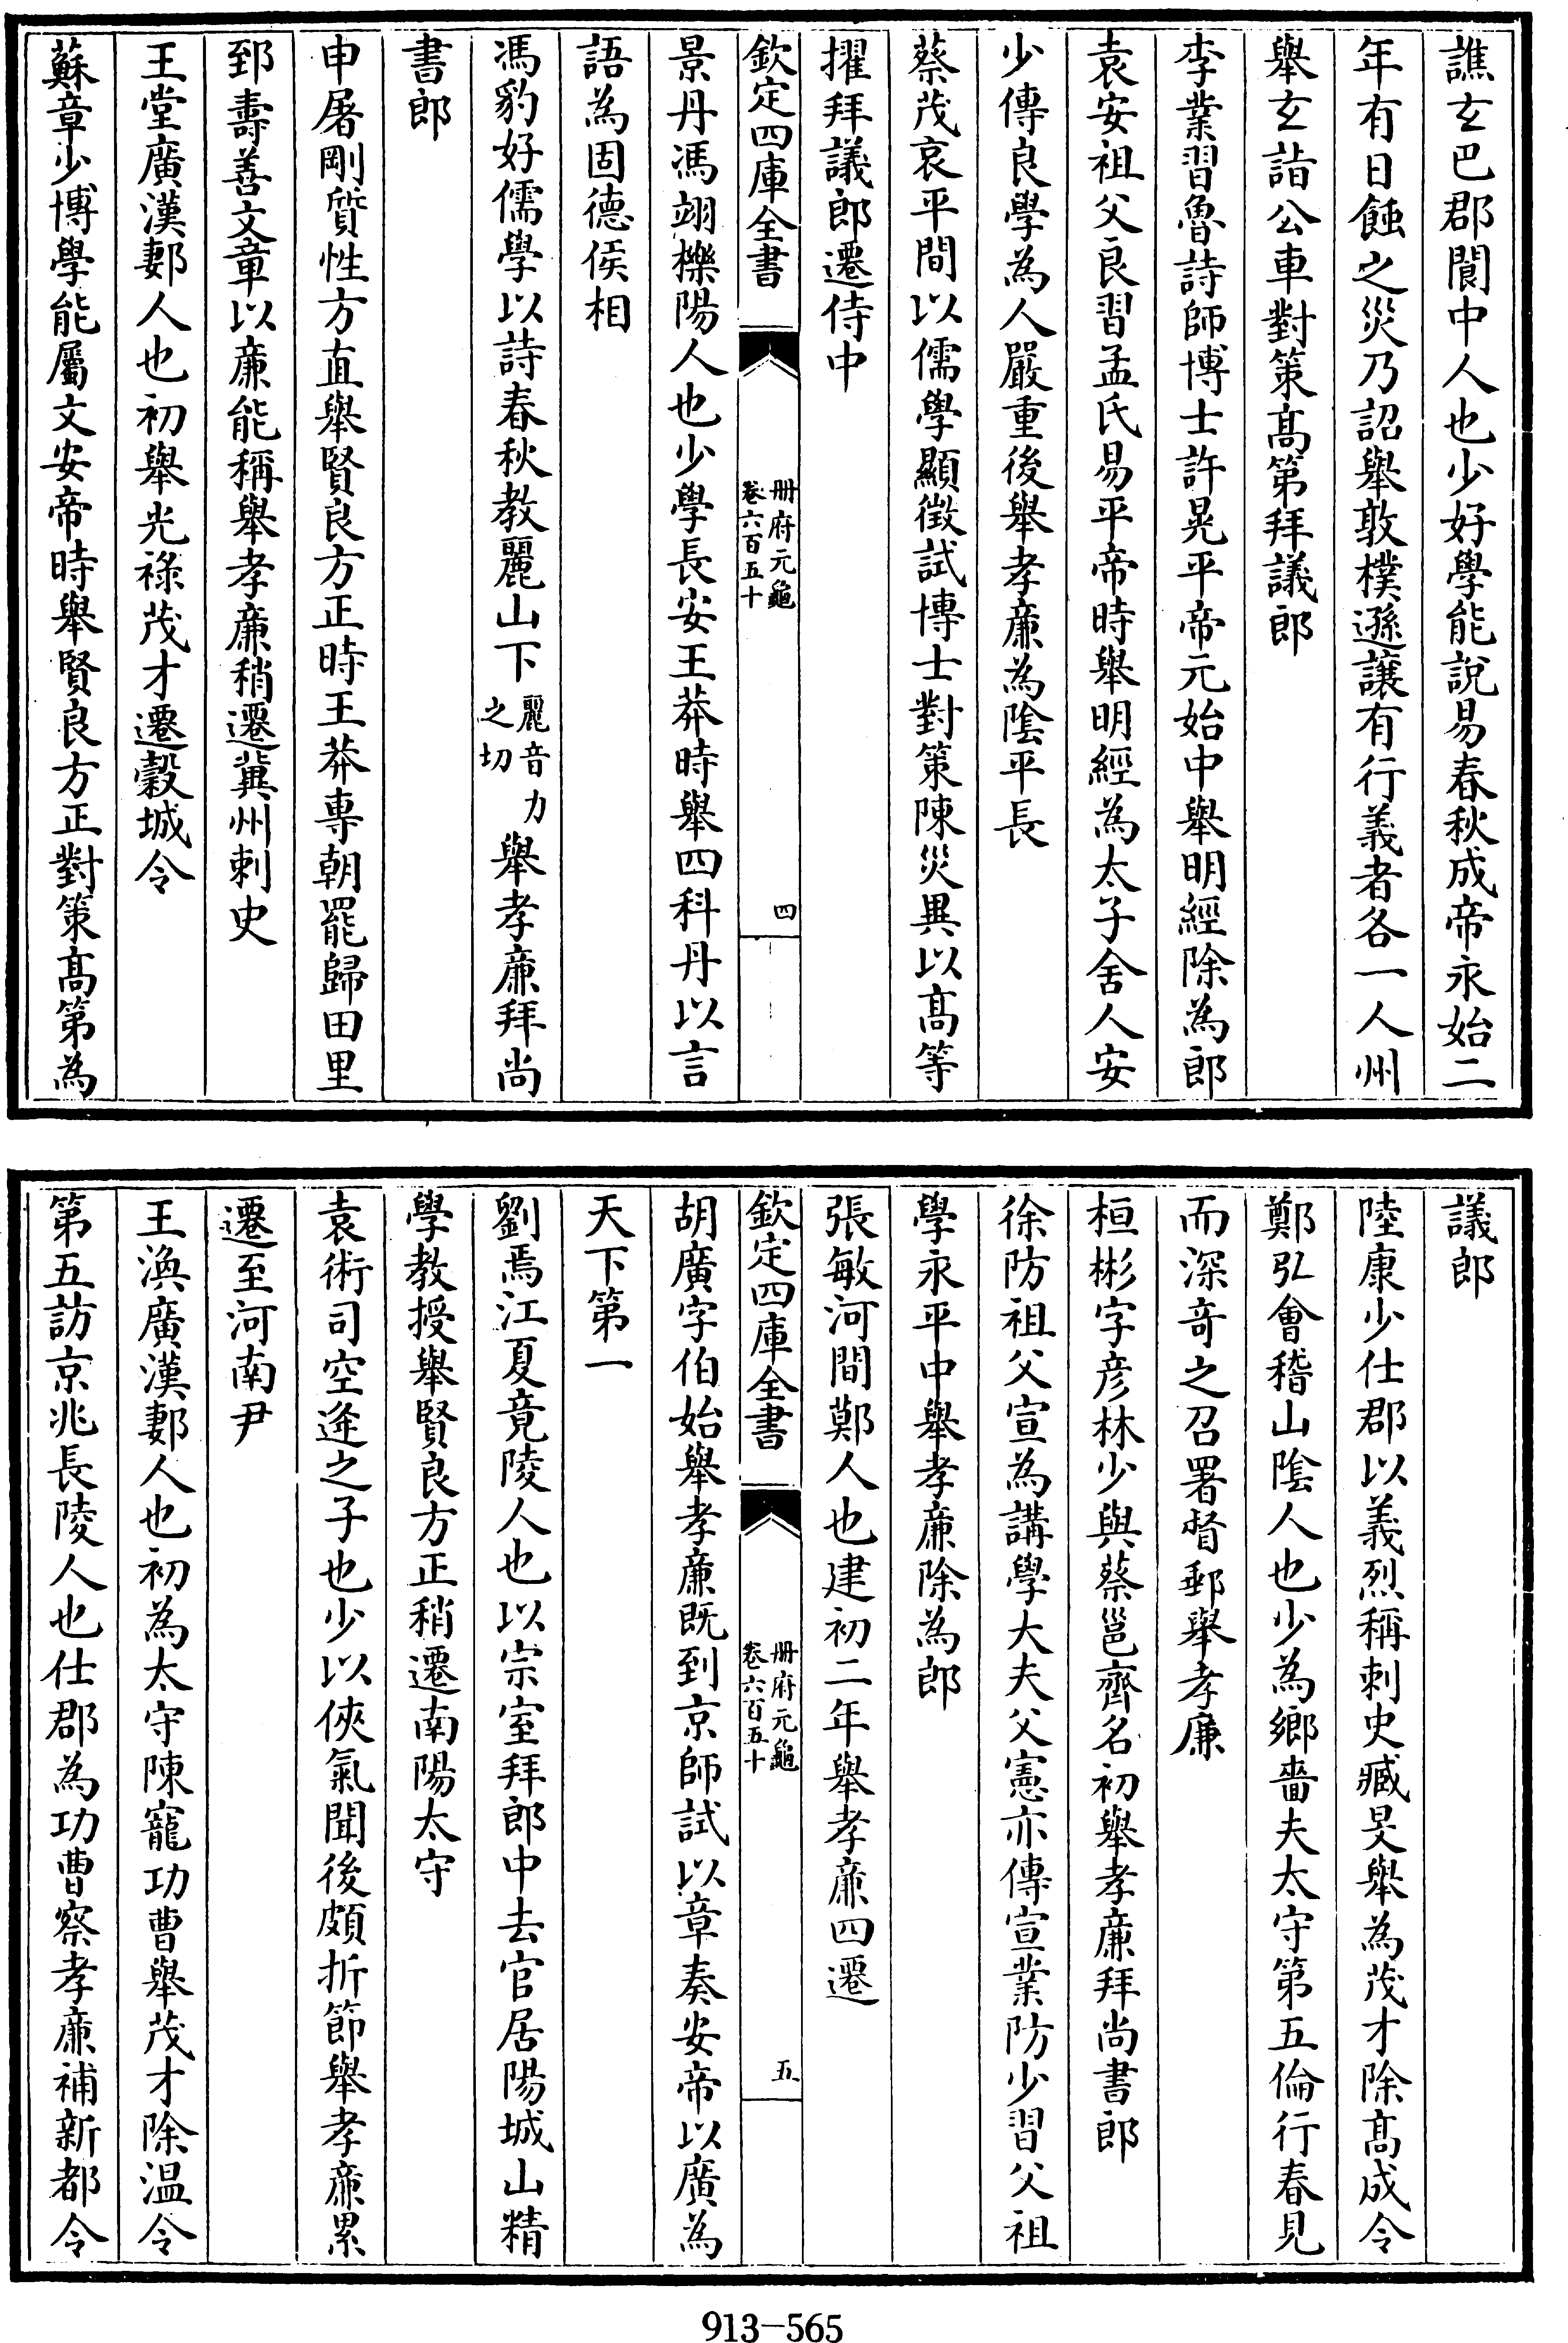 譙玄巴郡閬中人也少好學能説易春秋成帝永始二
年有日蝕之災乃詔舉敦樸遜讓有行義者各一人州
舉玄詣公車對策髙第拜議郎
李業習魯詩師博士許晃平帝元始中舉明經除為郎
袁安祖父良習孟氏易平帝時舉明經為太子舍人安
少傳良學為人嚴重後舉孝廉為隂平長
蔡茂哀平間以儒學顯徴試博士對策陳災異以髙等
擢拜議郎遷侍中
欽定四庫全書
冊府元龜
卷六百五十
四
景丹馮翊櫟陽人也少學長安王莽時舉四科丹以言
語為固德侯相
馮豹好儒學以詩春秋教麗山下麗音力之切舉孝廉拜尚
書郎
申屠剛質性方直舉賢良方正時王莽專朝罷歸田里
郅夀善文章以廉能稱舉孝廉稍遷冀州刺史
王堂廣漢郪人也初舉光祿茂才遷穀城令
蘇章少博學能屬文安帝時舉賢良方正對策髙第為
議郎
陸康少仕郡以義烈稱刺史臧旻舉為茂才除髙成令
鄭弘會稽山隂人也少為鄉嗇夫太守第五倫行春見
而深竒之召署督郵舉孝廉
桓彬字彦林少與蔡邕齊名初舉孝廉拜尚書郎
徐防祖父宣為講學大夫父憲亦傳宣業防少習父祖
學永平中舉孝廉除為郎
張敏河間鄭人也建初二年舉孝廉四遷
欽定四庫全書
冊府元龜
卷六百五十
五
胡廣字伯始舉孝廉既到京師試以章奏安帝以廣為
天下第一
劉焉江夏竟陵人也以宗室拜郎中去官居陽城山精
學教授舉賢良方正稍遷南陽太守
袁術司空逄之子也少以俠氣聞後頗折節舉孝廉累
遷至河南尹
王渙廣漢郪人也初為太守陳寵功曹舉茂才除温令
第五訪京兆長陵人也仕郡為功曹察孝廉補新都令
913-565